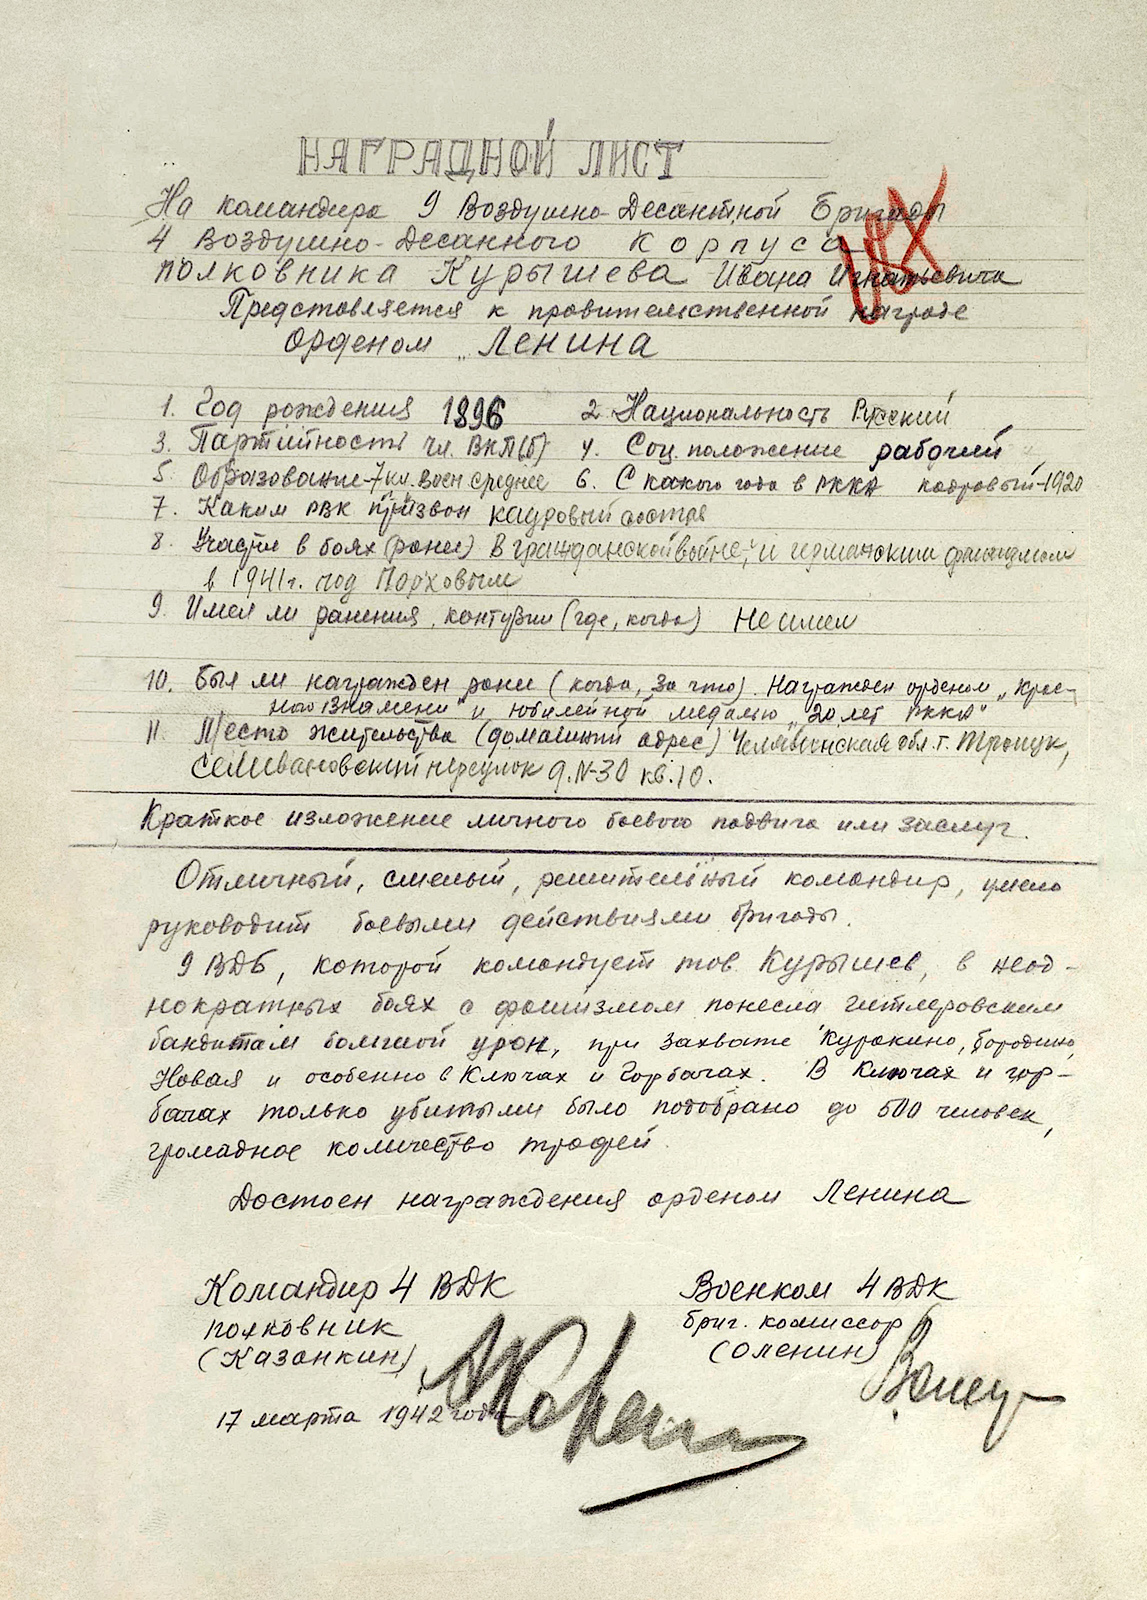 НАГРАДНОЙ ЛИСТ
На командира 9 Воздушно-Десантной Бригады
4 Воздушно-Десанного Корпуса
полковника Курышева Ивана Игнатьевича
Представляется к правительственной награде
Орденом „Ленина
1. Год рождения 1896 2. Национальность Русский
3. Партийность чл. ВКП(б) 4. Соц. положение рабочий
5. Образование-7 кл. Воен среднее 6. С какого года в РККА кадровый-1920
7. Каким РВК призван кадровый состав
8. Участие в боях (ранее) В гражданской войне, и германским фашизмом
в 1941 г. под Порховым
9. Имел ли ранения, контузии (где, когда) Не имел
10. Был ли награжден ранее (когда, за что). Награжден орденом „Крас-
ного Знамени" и юбилейной медалью „20 лет РККА"
11. Место жительства (домашний адрес) Челябинская обл. г. Троицк,
Селивановский переулок д. N-30 кв. 10.
Краткое изложение личного боевого подвига или заслуг.
Отличный, смелый, решительный командир, умело
руководит боевыми действиями бригады.
9 ВДБ, которой командует тов. Курышев, в неод-
нократных боях с фашизмом понесла гитлеровским
бандитам большой урон, при захвате Куракино, Бородино,
Новая и особенно в Ключах и Горбачах. В Ключах и Гор-
бачах только убитыми было подобрано до 500 человек,
громадное количество трофей.
Достоен награждения орденом Ленина
Командир 4 ВДК Военком 4 ВДК
полковник бриг. комиссар
(Казанкин) (Оленин)
17 марта 1942 года